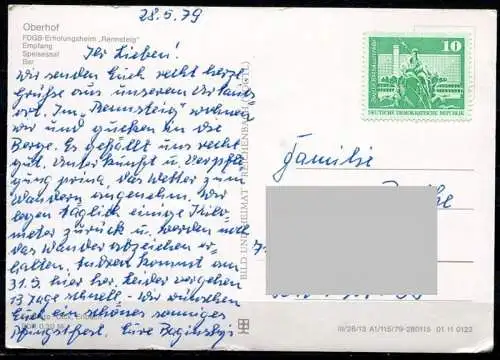 28.5.79
Oberhof
FDGB-Erholungsheim „Rennsteig"
Empfang
Speisesaal
Bar
Ihr Lieben!
Wir senden Euch recht herzl.
Grüße aus unserem Urlaubs
ort. Im „Rennsteig" wohnen
wir und gucken in die
Berge. Es gefällt uns recht
gut. Unterkunft u. Verpfle
gung prima, das Wetter zum
Wandern angenehm. Wir
legen täglich einige Kilo-
meter zurück u. werden noch
das Wanderabzeichen er-
halten. kommt am
31.5. hier her. Leider vergehen
13 Tage schnell - Wir wünschen
Euch ein schönes sonniges
Pfingstfest. Eure
BILD UND HEIMAT REICHENBACH (VOGTL)
10
DEUTSCHE DEMOKRATISCHE REPUBLIK
Familie
III/26/13 A1/115/79-280115 01 11 0122